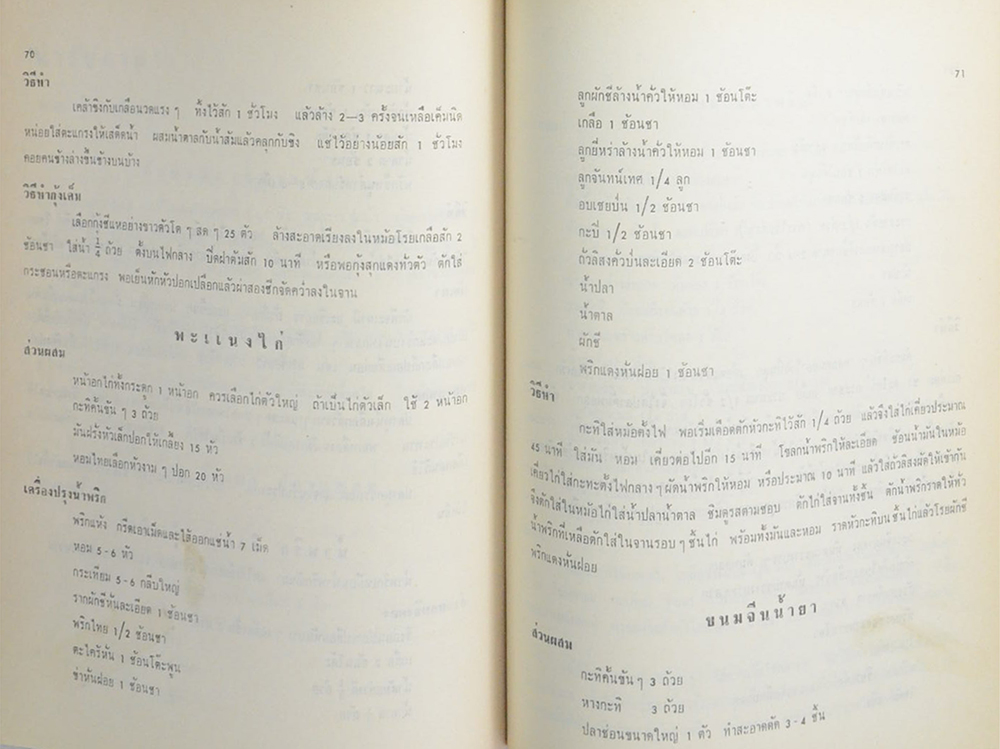 70
วิธีทำ
เคล้าขิงกับเกลือนวดแรง ๆ ทิ้งไว้สัก 1 ชั่วโมง แล้วล้าง 2—3 ครั้งจนเหลือเค็มนิด
หน่อยใส่ตะแกรงให้เสด็ดน้ำ ผสมน้ำตาลกับน้ำส้มแล้วคลุกกับขิง แช่ไว้อย่างน้อยสัก 1 ชั่วโมง
คอยคนข้างล่างขึ้นข้างบนบ้าง
วิธีทำกุ้งเค็ม
เลือกกุ้งชีแหอย่างขาวตัวโต ๆ สด ๆ 25 ตัว ล้างสะอาดเรียงลงในหม้อโรยเกลือสัก 2
ช้อนชา ใส่น้ำ ¼ ถ้วย ตั้งบนไฟกลาง ปิดฝาต้มสัก 10 นาที หรือพอกุ้งสุกแดงทั่วตัว ตักใส่
กระชอนหรือตะแกรง พอเย็นหักหัวปอกเปลือกแล้วผ่าสองซีกจัดคว่ำลงในจาน
พะแนงไก่
ส่วนผสม
หน้าอกไก่ทั้งกระดูก 1 หน้าอก ควรเลือกไก่ตัวใหญ่ ถ้าเป็นไก่ตัวเล็ก ใช้ 2 หน้าอก
กะทิคั้นข้น ๆ 3 ถ้วย
มันฝรั่งหัวเล็กปอกให้เกลี้ยง 15 หัว
หอมไทยเลือกหัวงาม ๆ ปอก 20 หัว
เครื่องปรุงน้ำพริก
พริกแห้ง กรีดเอาเม็ดและไส้ออกแช่น้ำ 7 เม็ด
หอม 5-6 หัว
กระเทียม 5-6 กลีบใหญ่
รากผักชีหั่นละเอียด 1 ช้อนชา
พริกไทย 1/2 ช้อนชา
ตะไคร้หั่น 1 ช้อนโต๊ะพูน
ข่าหั่นฝอย 1 ช้อนชา
71
ลูกผักชีล้างน้ำคั่วให้หอม 1 ช้อนโต๊ะ
เกลือ 1 ช้อนชา
ลูกยี่หร่าล้างน้ำคั่วให้หอม 1 ช้อนชา
ลูกจันทน์เทศ 1/4 ลูก
อบเชยป่น 1/2 ช้อนชา
กะปิ 1/2 ช้อนชา
ถั่วลิสงคั่วป่นละเอียด 2 ช้อนโต๊ะ
น้ำปลา
น้ำตาล
ผักชี
พริกแดงหั่นฝอย 1 ช้อนชา
วิธีทำ
กะทิใส่หม้อตั้งไฟ พอเริ่มเดือดตักหัวกะทิไว้สัก 1/4 ถ้วย แล้วจึงใส่ไก่เคี่ยวประมาณ
45 นาที ใส่มัน หอม เคี่ยวต่อไปอีก 15 นาที โขลกน้ำพริกให้ละเอียด ช้อนน้ำมันในหม้อ
เคี่ยวไก่ใส่กะทะตั้งไฟกลาง ๆ ผัดน้ำพริกให้หอม หรือประมาณ 10 นาที แล้วใส่ถั่วลิสงผัดให้เข้ากัน
จึงตักใส่ในหม้อไก่ใส่น้ำปลาน้ำตาล ชิมดูรสตามชอบ ตักไก่ใส่จานทั้งชิ้น ตักน้ำพริกราดให้ทั่ว
น้ำพริกที่เหลือตักใส่ในจานรอบ ๆ ชิ้นไก่ พร้อมทั้งมันและหอม ราดหัวกะทิบนชิ้นไก่แล้วโรยผักชี
พริกแดงหั่นฝอย
ขนมจีนน้ำยา
ส่วนผสม
กะทิคั้นข้น ๆ 3 ถ้วย
หางกะทิ 3 ถ้วย
ปลาช่อนขนาดใหญ่ 1 ตัว ทำสะอาดตัด 3-4 ชิ้น